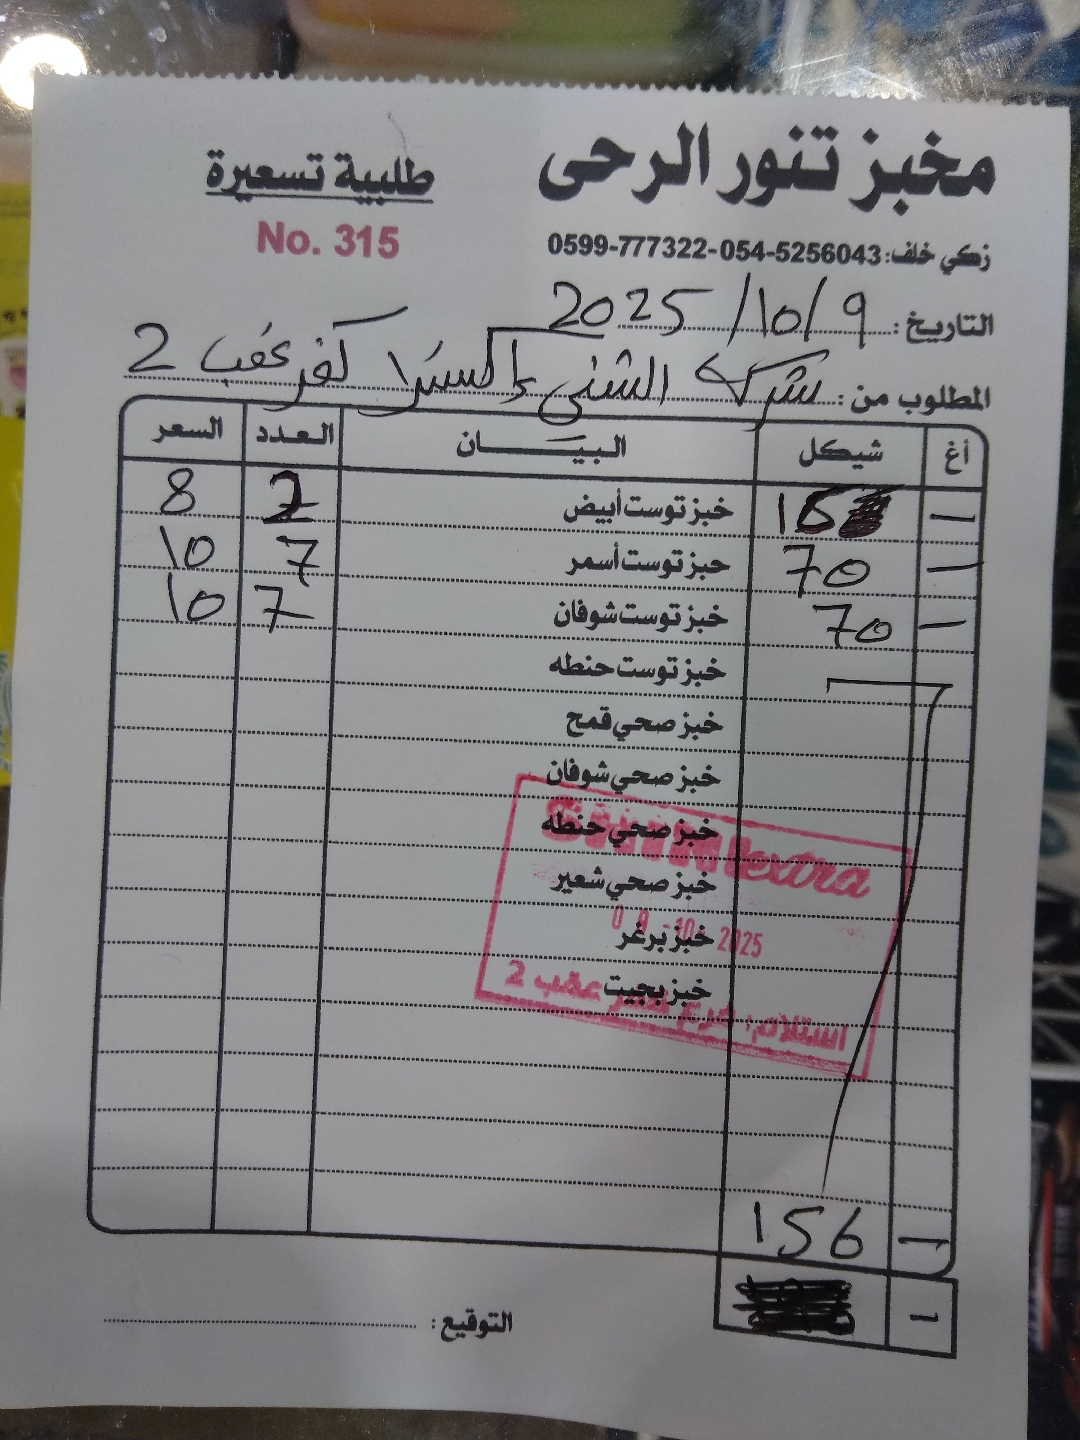 مخبز تنور الرحى
طلبية تسعيرة
No. 315
زكي خلف: 0599-777322-054-5256043
التاريخ: 9/10/2025
المطلوب من: شركة الشني إكسترا كفر عقب 2
أغ شيكل البيـــان العدد السعر
— 16 خبز توست أبيض 2 8
— 70 خبز توست أسمر 7 10
— 70 خبز توست شوفان 7 10
خبز توست حنطه
خبز صحي قمح
خبز صحي شوفان
خبز صحي حنطه
خبز صحي شعير
خبز برغر
خبز بجيت
extra
09-10-2025
استلام: فرع كفر عقب 2
— 156
التوقيع: